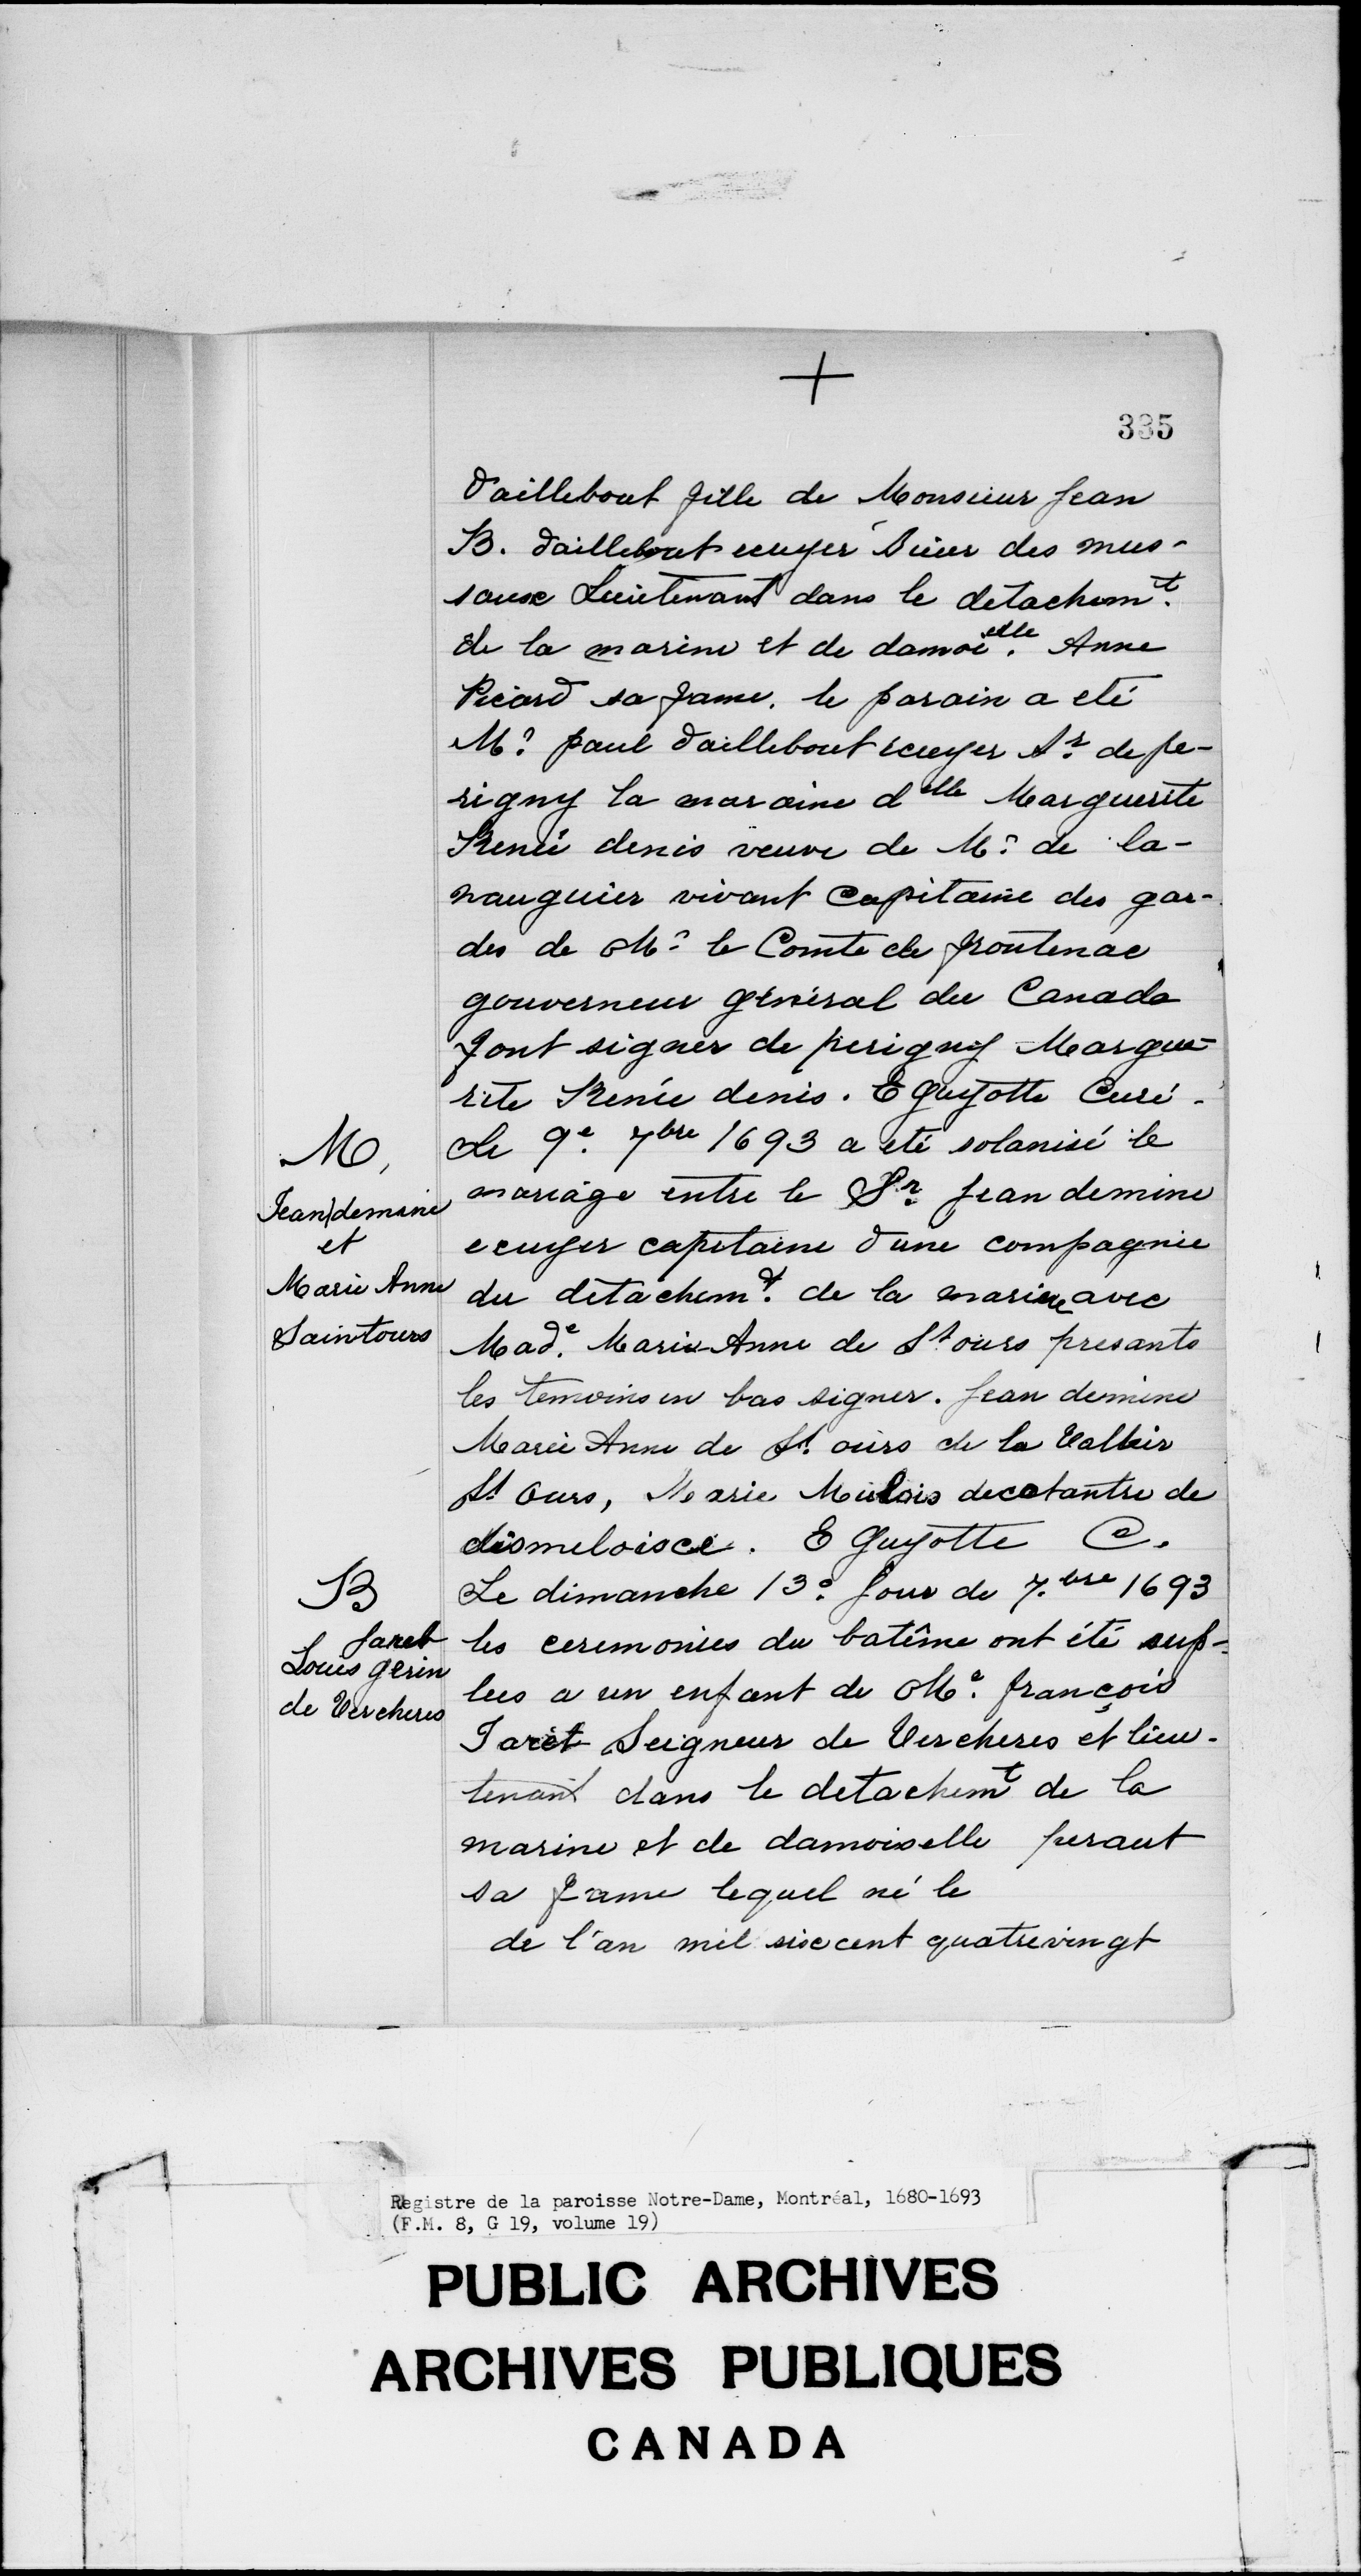 335
d'aillebout fille de Monsieur Jean
B. d'aillebout ecuyer Sieur des mus-
saux Lieutenant dans le detachemt.
de la marine et de damoielle. Anne
Picard sa fame. le parain a eté
Mr. paul d'aillebout ecuyer Sr. de pe-
rigny la maraine delle Marguerite
Renée denis veuve de Mr. de la-
nauguier vivant Capitaine des gar-
des de Mr. le Comte de frontenac
gouverneur général du Canada
font signer de perigny Margue-
rite Renée denis. E Guyotte Curé.
M,
Jean demine
et
Marie Anne
Saintours
Le 9e. 7bre 1693 a eté solanisé le
mariage entre le Sr. Jean demine
ecuyer capitaine d'une compagnie
du detachemt. de la marine avec
Made. Marie Anne de St ours presants
les temoins en bas signer. Jean demine
Marie Anne de St. ours de la Vallier
St Ours, Marie Mulois decatantre de
dismeloisce. E Guyotte C.
B
Jaret
Louis gerin
de Vercheres
Le dimanche 13e. Jour de 7.bre 1693
les ceremonies du batême ont été sup-
lees a un enfant de Mr. françois
Jarét Seigneur de Vercheres et lieu-
tenant dans le detachemt de la
marine et de damoiselle peraut
sa fame lequel né le
de l'an mil six cent quatrevingt
Registre de la paroisse Notre-Dame, Montréal, 1680-1693
(F.M. 8, G 19, volume 19)
PUBLIC ARCHIVES
ARCHIVES PUBLIQUES
CANADA